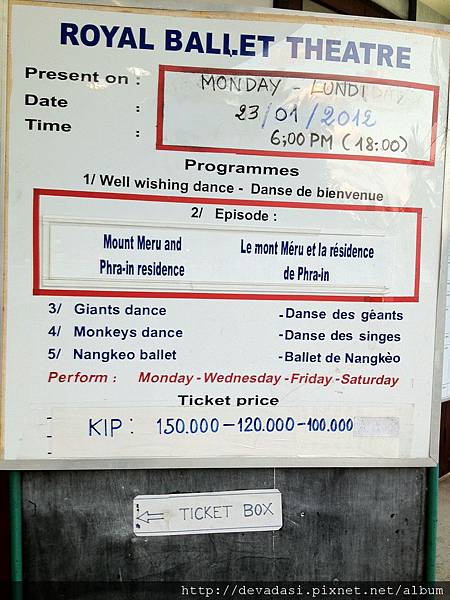 ROYAL BALLET THEATRE
Present on :
MONDAY - LUNDI
Date :
23/01/2012
Time :
6;00 PM (18:00)
Programmes
1/ Well wishing dance - Danse de bienvenue
2/ Episode :
Mount Meru and
Phra-in residence
Le mont Méru et la résidence
de Phra-in
3/ Giants dance -Danse des géants
4/ Monkeys dance -Danse des singes
5/ Nangkeo ballet -Ballet de Nangkèo
Perform : Monday -Wednesday -Friday -Saturday
Ticket price
KIP: 150.000-120.000-100.000
TICKET BOX
http://devadasi.pixnet.net/album